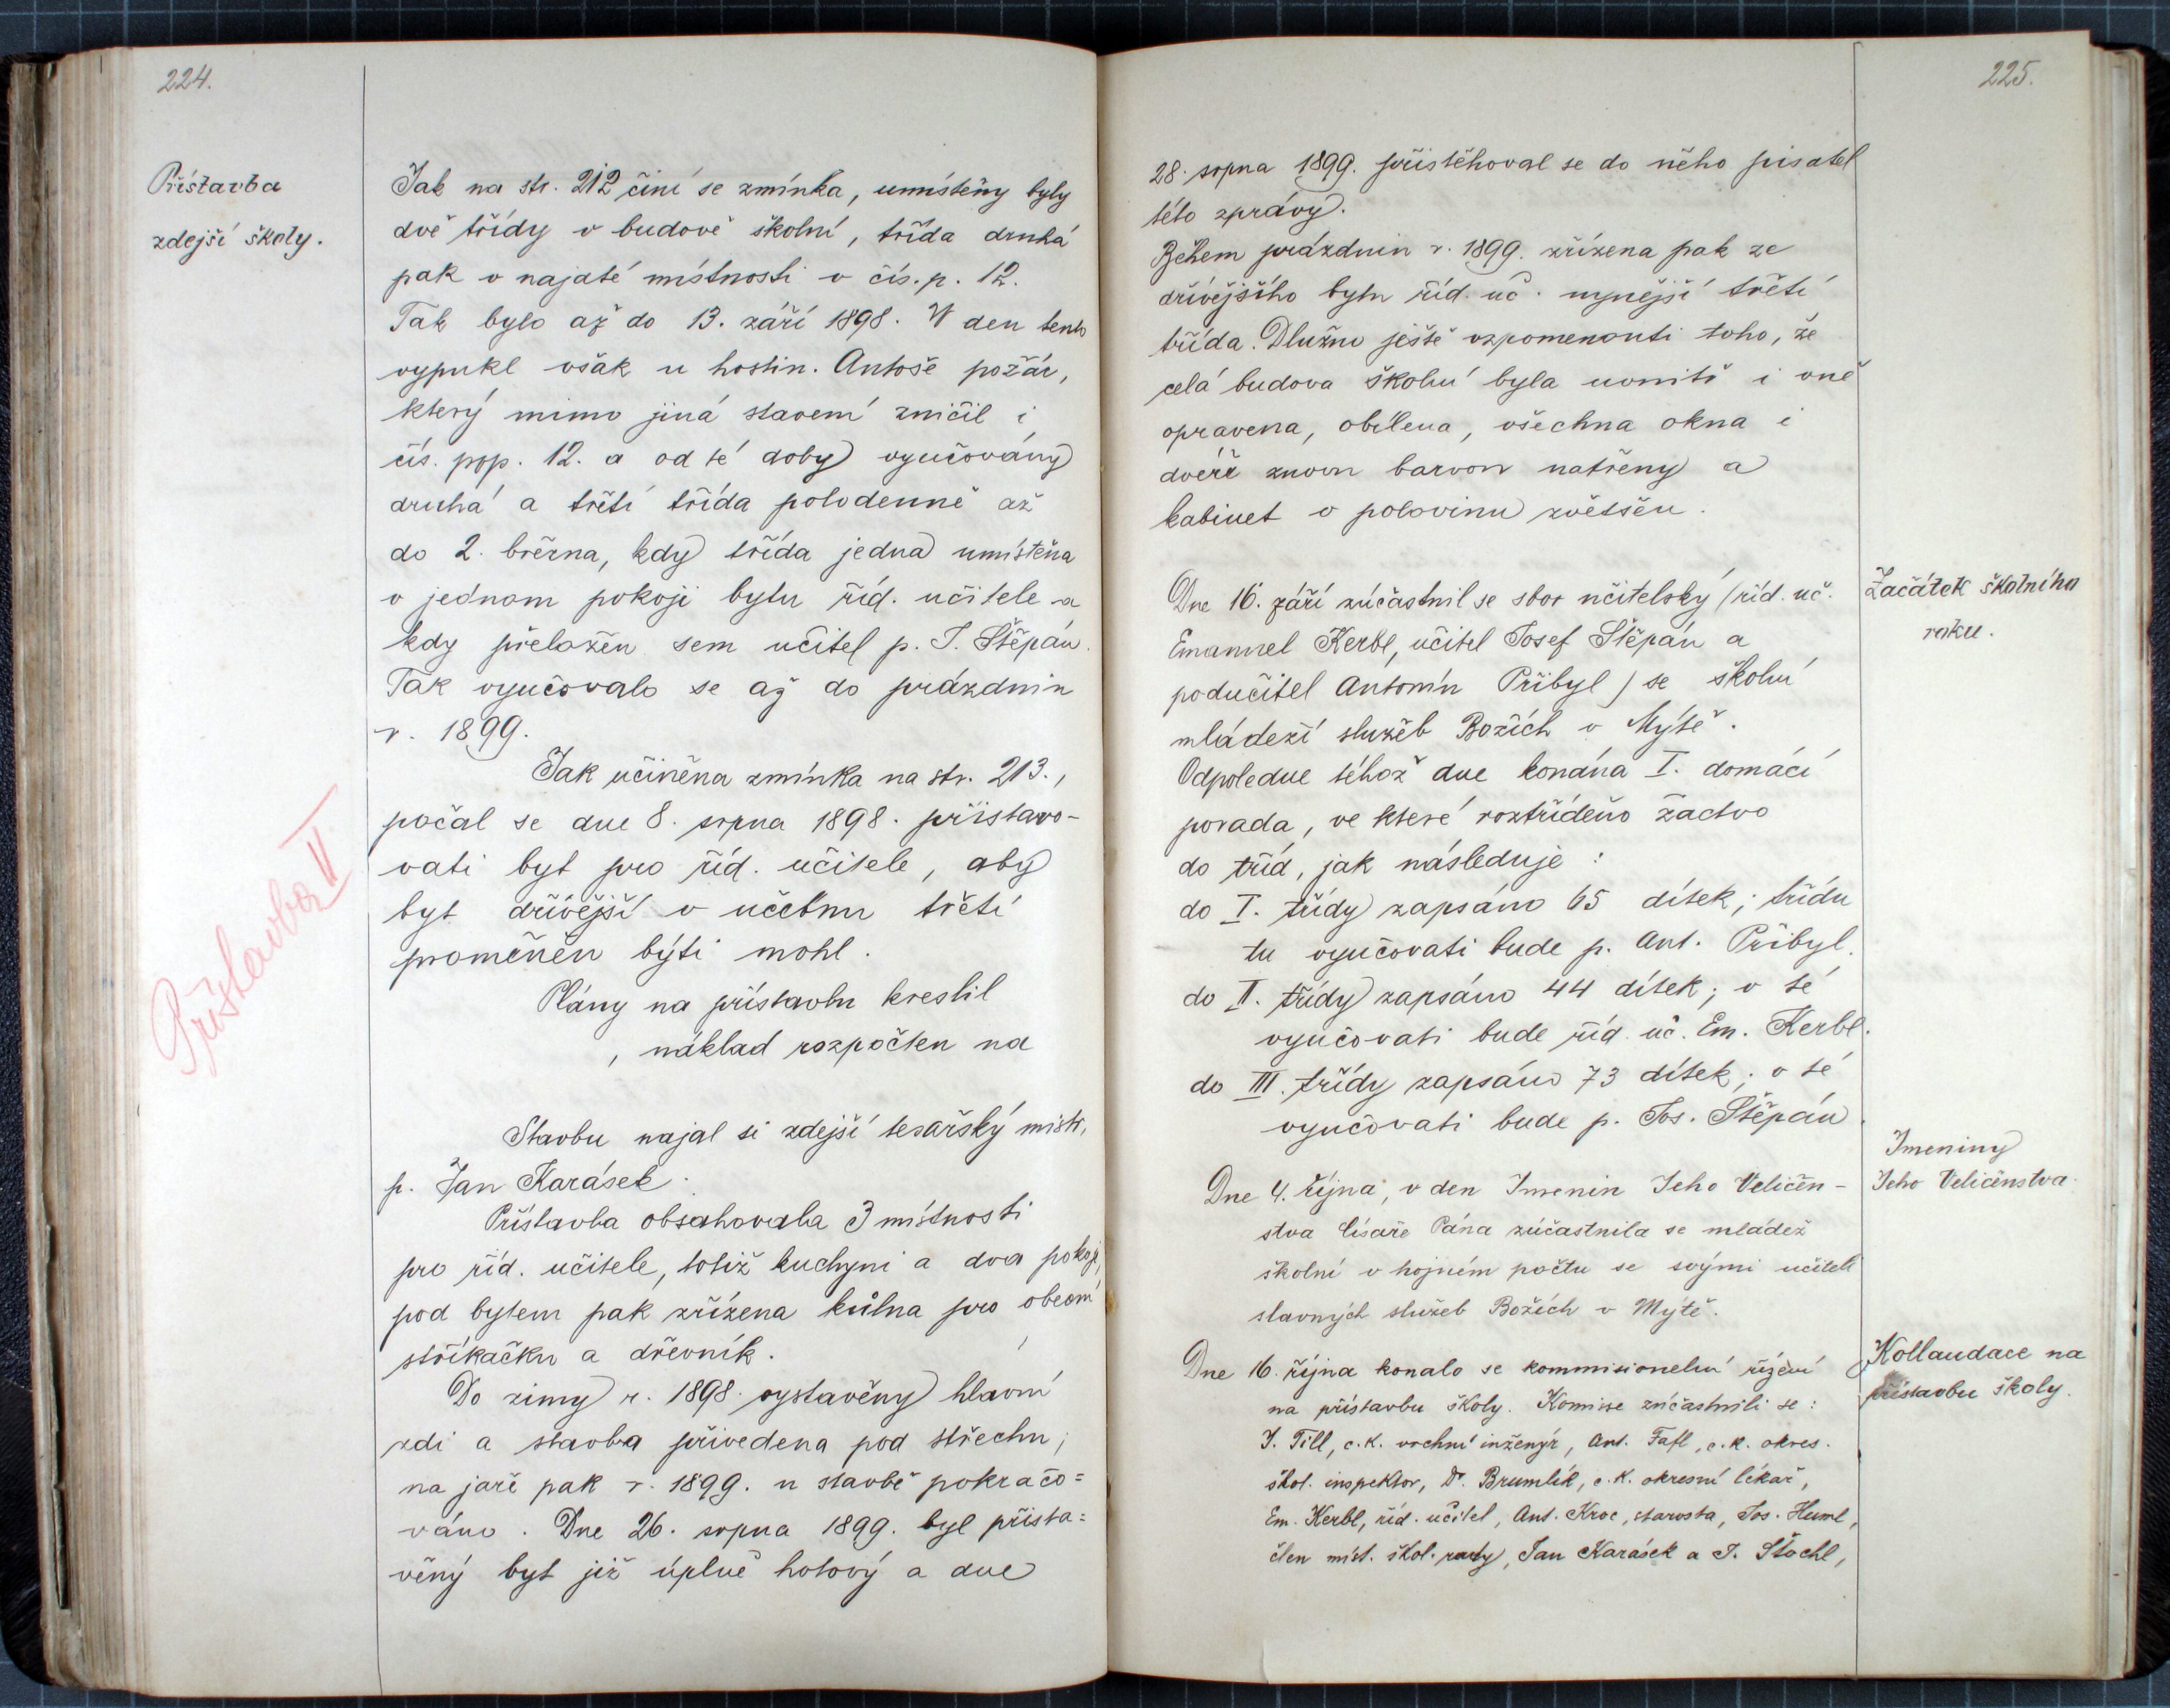 224.
Přístavba
zdejší školy.
Jak na str. 212 činí se zmínka, umístěny byly
dvě třídy v budově školní, třída druhá
pak v najaté místnosti v čís. p. 12.
Tak bylo až do 13. září 1898. V den tento
vypukl však u hostin. Antoše požár,
který mimo jiná stavení zničil i
čís. pop. 12. a od té doby vyučovány
druhá a třetí třída polodenně až
do 2. března, kdy třída jedna umístěna
v jednom pokoji bytu říd. učitele a
kdy přeložen sem učitel p. J. Štěpán.
Tak vyučovalo se až do prázdnin
r. 1899.
Jak učiněna zmínka na str. 213.,
počal se dne 8. srpna 1898. přistavo-
vati byt pro říd. učitele, aby
byt dřívější v učebnu třetí
proměněn býti mohl.
Přístavba II
Plány na přístavbu kreslil
, náklad rozpočten na
Stavbu najal si zdejší tesařský mistr,
p. Jan Karásek.
Přístavba obsahovala 3 místnosti
pro říd. učitele, totiž kuchyni a dva pokoje,
pod bytem pak zřízena kůlna pro obecní
stříkačku a dřevník.
Do zimy r. 1898. vystavěny hlavní
zdi a stavba přivedena pod střechu;
na jaře pak r. 1899. u stavbě pokračo=
váno. Dne 26. srpna 1899. byl přista=
věný byt již úplně hotový a dne
225.
28. srpna 1899. přistěhoval se do něho pisatel
této zprávy.
Během prázdnin r. 1899. zřízena pak ze
dřívějšího bytu říd. uč. nynější třetí
třída. Dlužno ještě vzpomenouti toho, že
celá budova školní byla uvnitř i vně
opravena, obílena, všechna okna i
dvéře znovu barvou natřeny a
kabinet o polovinu zvětšen.
Začátek školního
roku.
Dne 16. září zúčastnil se sbor učitelský (říd. uč.
Emanuel Kerbl, učitel Josef Štěpán a
podučitel Antonín Přibyl) se školní
mládeží služeb Božích v Mýtě.
Odpoledne téhož dne konána I. domácí
porada, ve které roztříděno žactvo
do tříd, jak následuje:
do I. třídy zapsáno 65 dítek; třídu
tu vyučovati bude p. Ant. Přibyl.
do II. třídy zapsáno 44 dítek; v té
vyučovati bude říd. uč. Em. Kerbl.
do III. třídy zapsáno 73 dítek; v té
vyučovati bude p. Jos. Štěpán.
Jmeniny
Jeho Veličenstva.
Dne 4. října, v den Jmenin Jeho Veličen-
stva Císaře Pána zúčastnila se mládež
školní v hojném počtu se svými učiteli
slavných služeb Božích v Mýtě.
Kollaudace na
přístavbu školy.
Dne 16. října konalo se kommisionelní řízení
na přístavbu školy. Komisse zúčastnili se:
J. Till, c. k. vrchní inženýr, Ant. Fafl, c. k. okres.
škol. inspektor, Dr. Brumlík, c. k. okresní lékař,
Em. Kerbl, říd. učitel, Ant. Kroc, starosta, Jos. Huml,
člen míst. škol. rady, Jan Karásek a J. Štochl,